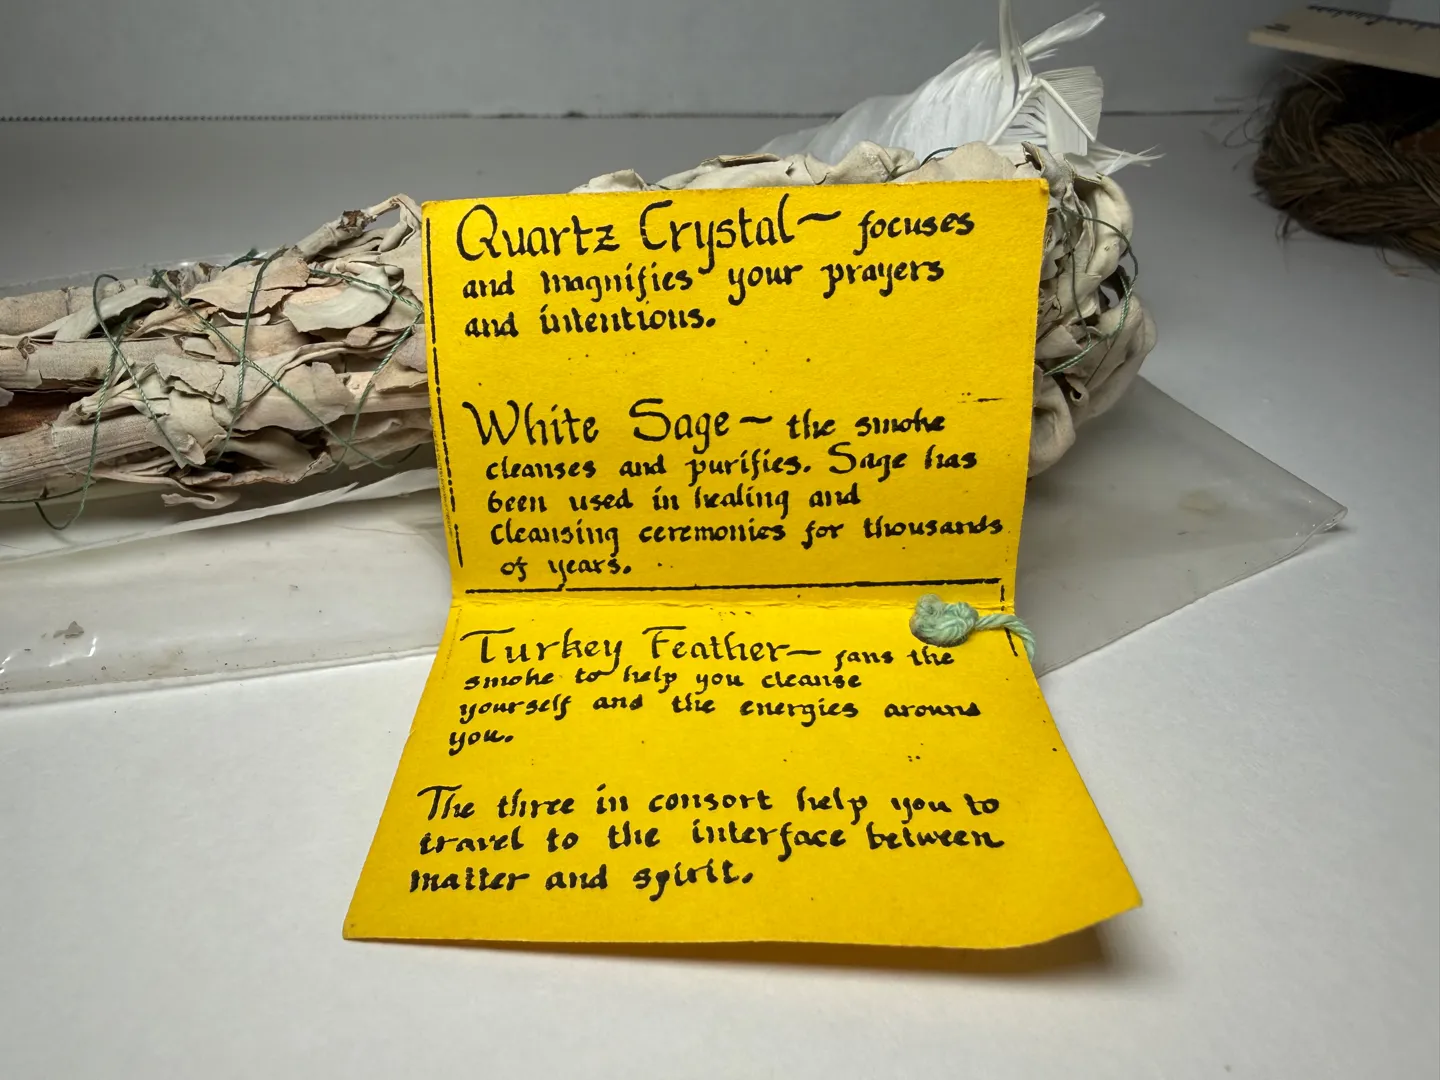 Quartz Crystal~ focuses
and magnifies your prayers
and intentions.
White Sage~ the smoke
cleanses and purifies. Sage has
been used in healing and
cleansing ceremonies for thousands
of years.
Turkey Feather— fans the
smoke to help you cleanse
yourself and the energies around
you.
The three in consort help you to
travel to the interface between
matter and spirit.